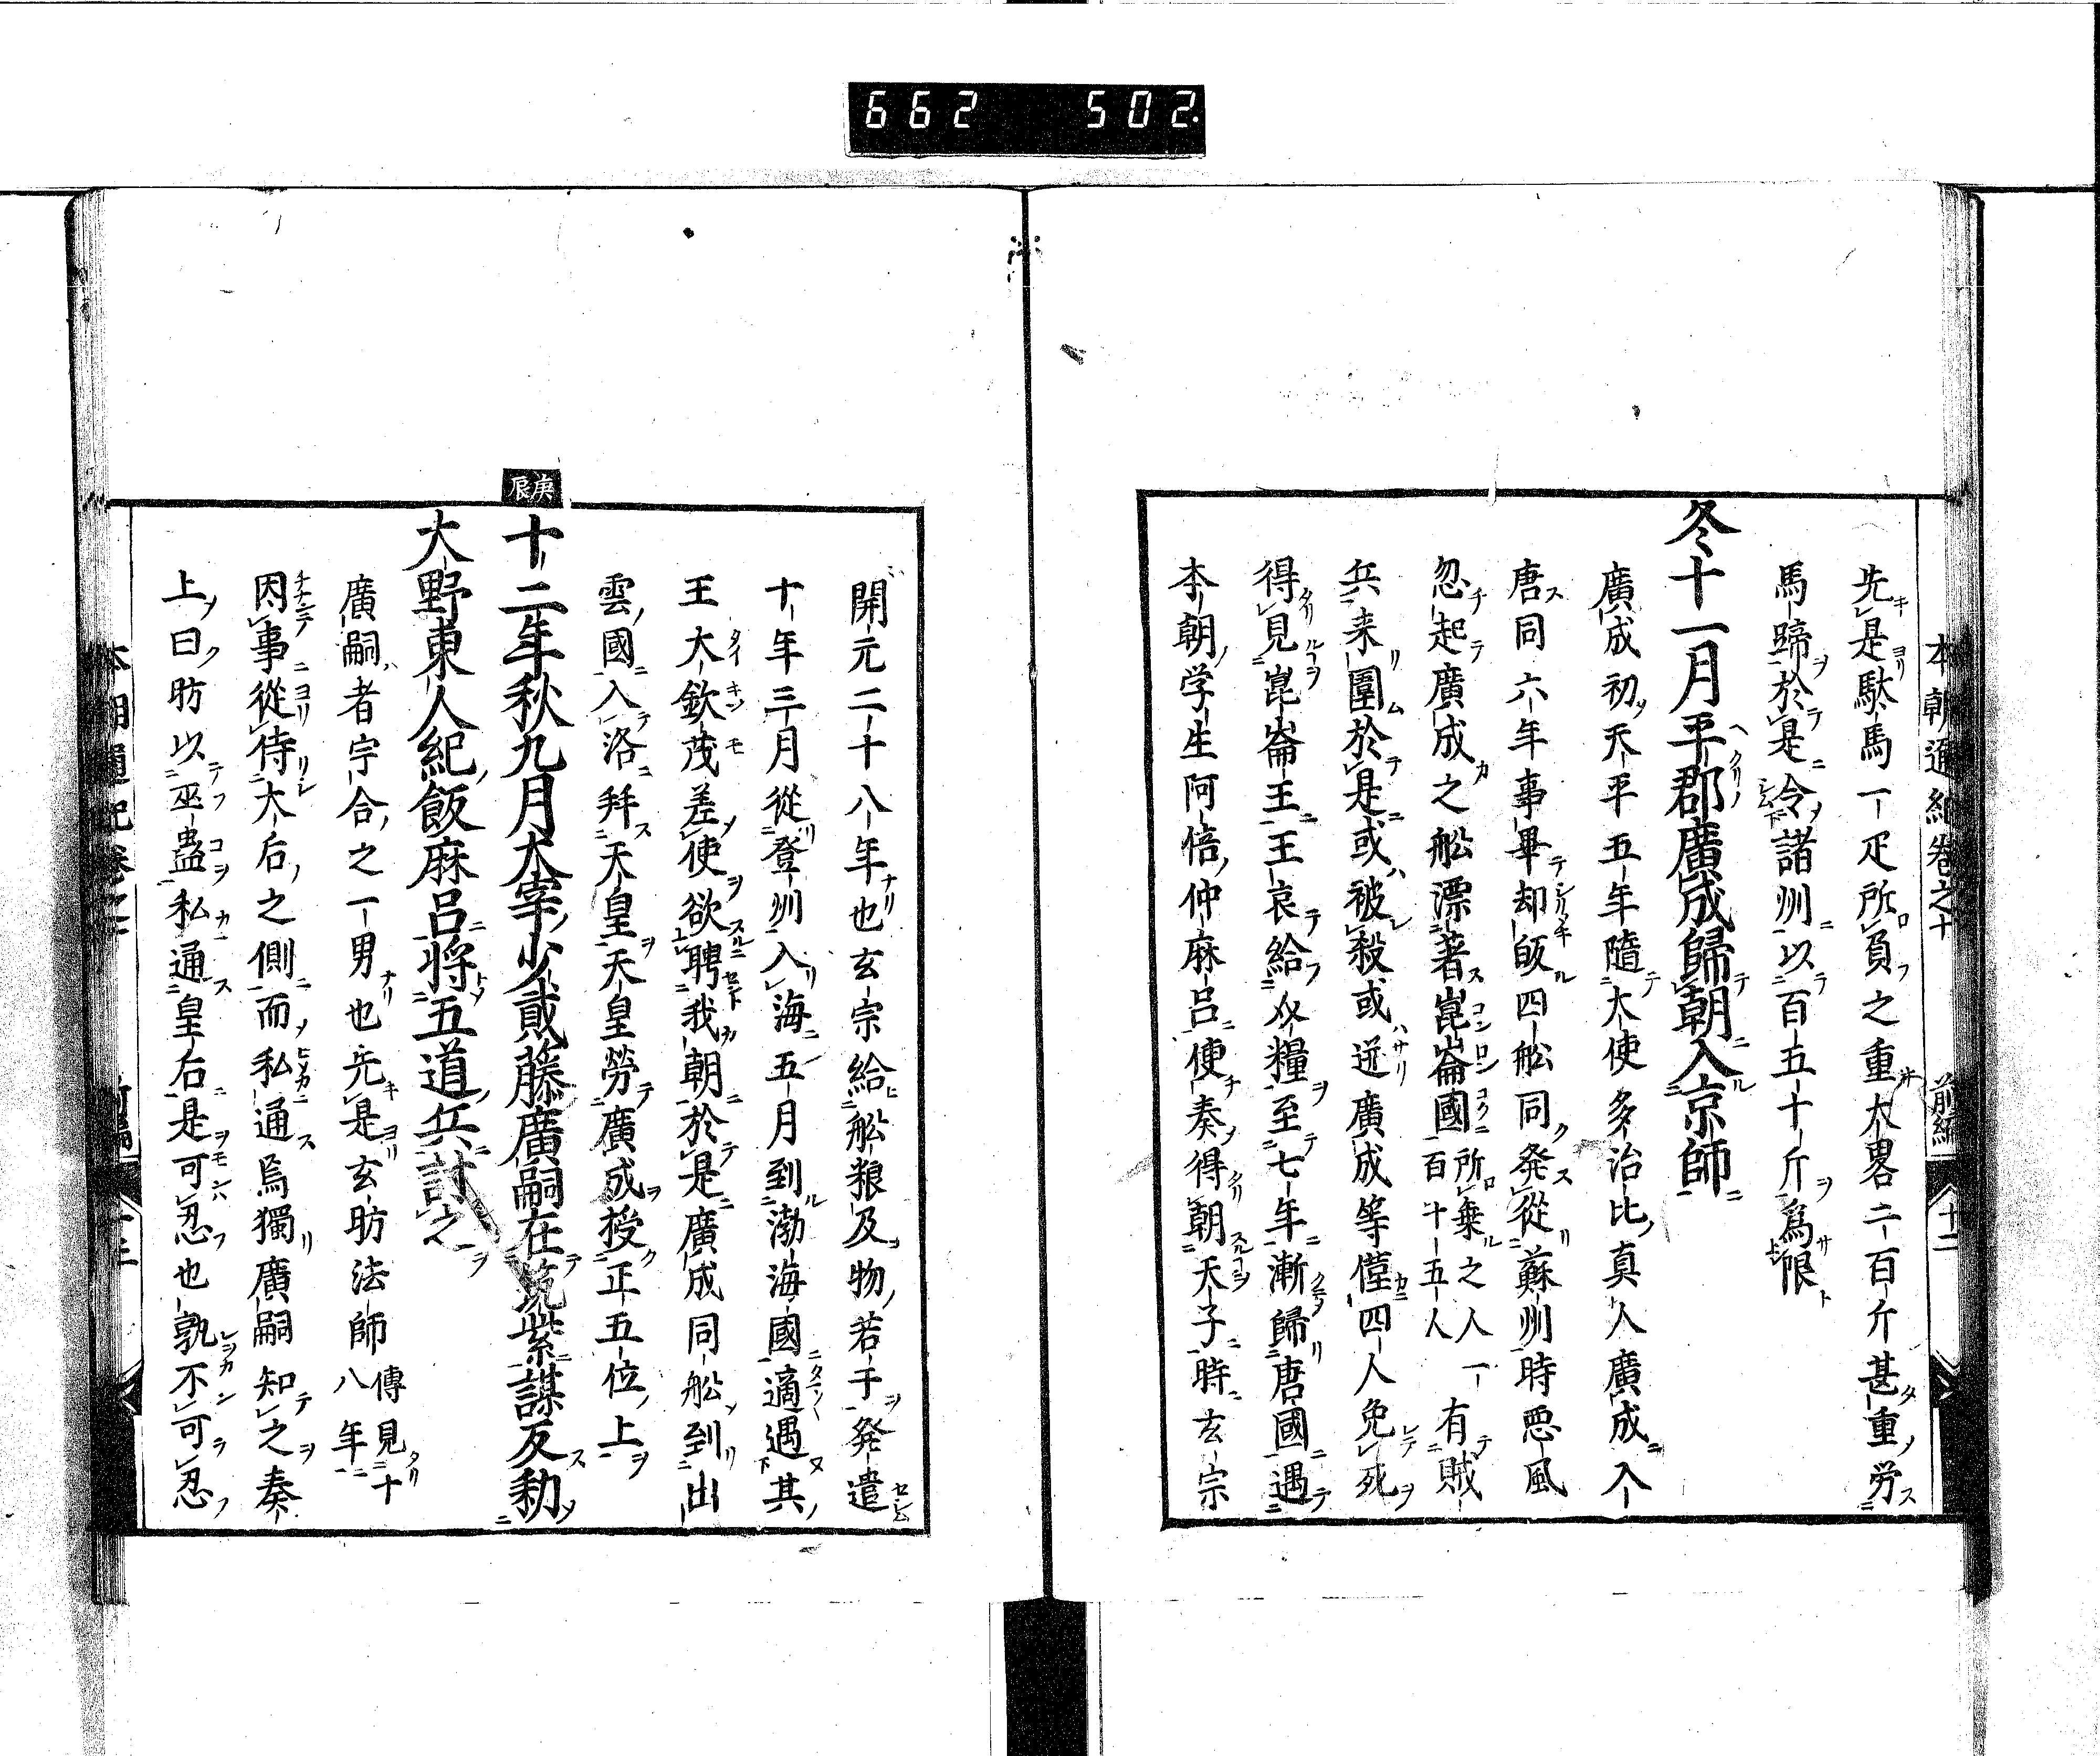 662 502.
本朝通紀卷之十 前編 十二
先是駄馬一疋所負之重大畧二百斤甚重労
馬蹄於是令諸州以百五十斤爲限
冬十一月平郡廣成歸朝入京師
廣成初天平五年隨大使多治比真人廣成入
唐同六年事畢却皈四舩同発從蘇州時悪風
忽起廣成之舩漂著崑崙國所乗之人一百十五人有賊
兵来圍於是或被殺或迯廣成等僅四人免死
得見崑崙王王哀給以糧至七年漸歸唐國遇
本朝学生阿倍仲麻呂便奏得朝天子時玄宗
開元二十八年也玄宗給舩粮及物若干発遣
十年三月從登州入海五月到渤海國適遇其
王大欽茂差使欲聘我朝於是廣成同舩到出
雲國入洛拜天皇天皇勞廣成授正五位上
庚辰
十二年秋九月太宰少貳藤廣嗣在筑紫謀反勅
大野東人紀飯麻呂將五道兵討之
廣嗣者宇合之一男也先是玄昉法師傳見十八年
因事從侍大后之側而私通焉獨廣嗣知之奏
上曰昉以巫蠱私通皇后是可忍也孰不可忍